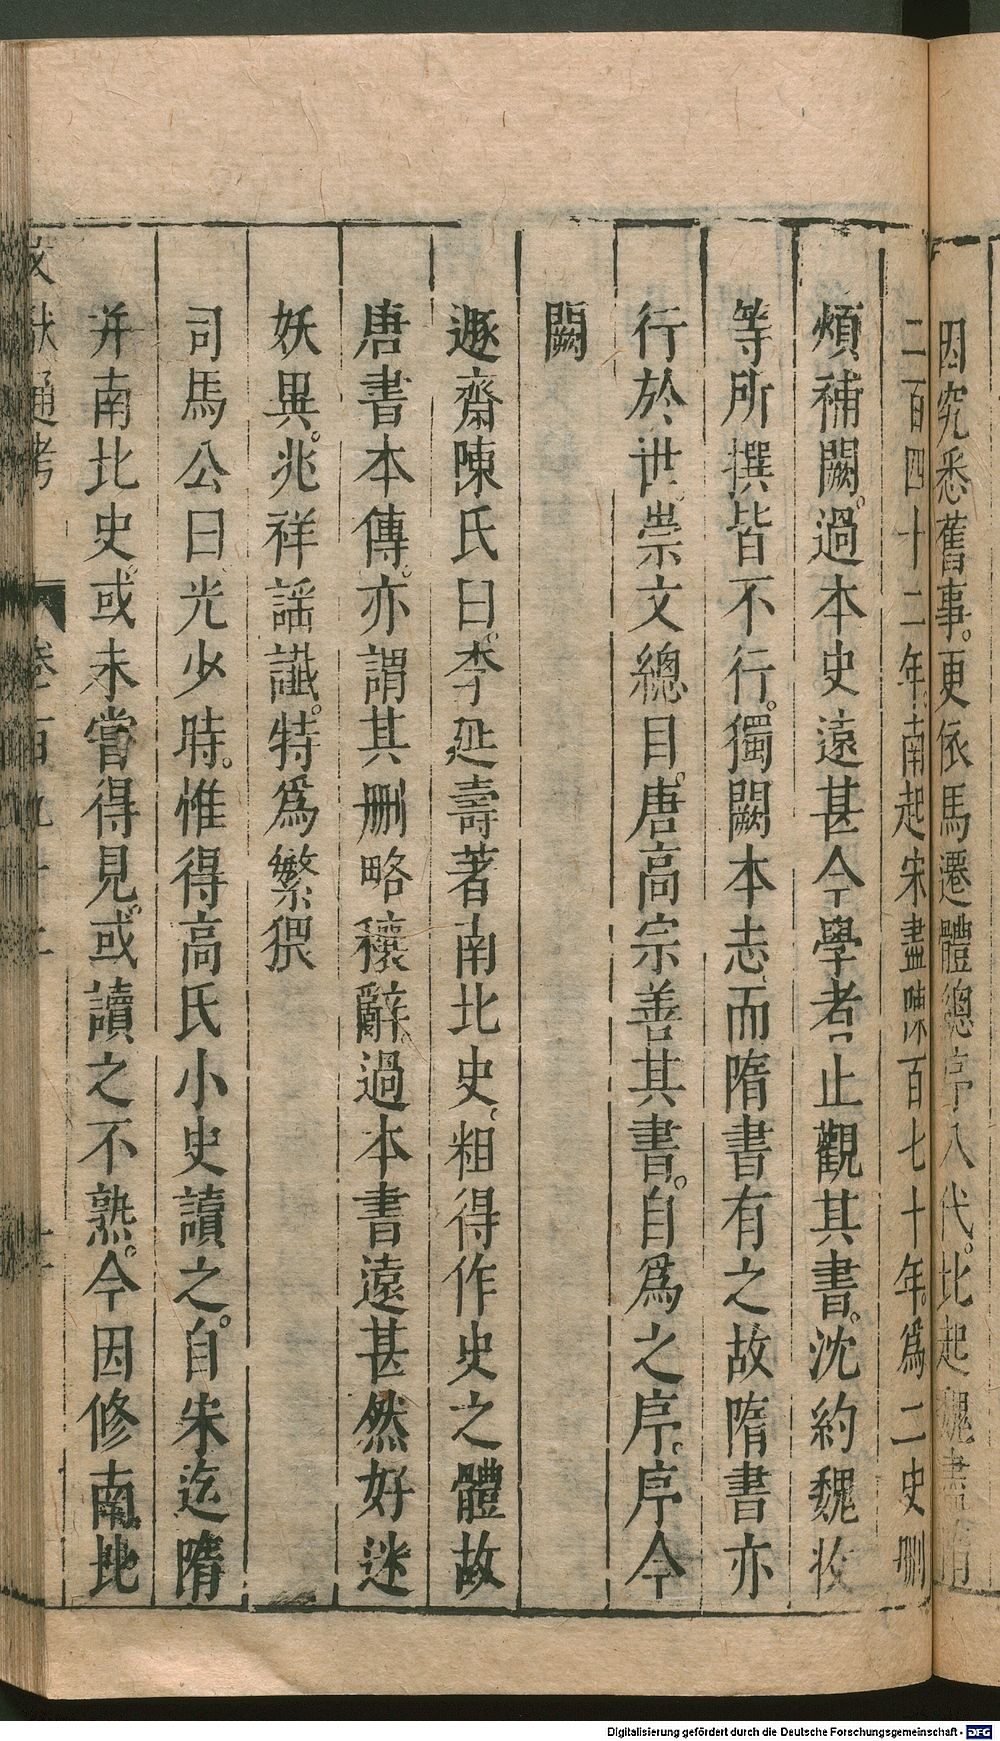 因究悉舊事。更依馬遷體總序八代。北起魏盡隋
二百四十二年。南起宋盡陳百七十年。爲二史刪
煩補闕。過本史遠甚今學者止觀其書。沈約魏收
等所撰皆不行。獨闕本志而隋書有之故隋書亦
行於世。崇文總目。唐高宗善其書。自爲之序。序今
闕
遯齋陳氏曰。李延壽著南北史。粗得作史之體故
唐書本傳。亦謂其刪略穰辭。過本書遠甚然好述
妖異。兆祥謡讖。特爲繁猥
司馬公曰光少時。惟得高氏小史讀之。自宋迄隋
并南北史。或未嘗得見。或讀之不熟。今因修南北
文獻通考 卷一百九十二
Digitalisierung gefördert durch die Deutsche Forschungsgemeinschaft - DFG